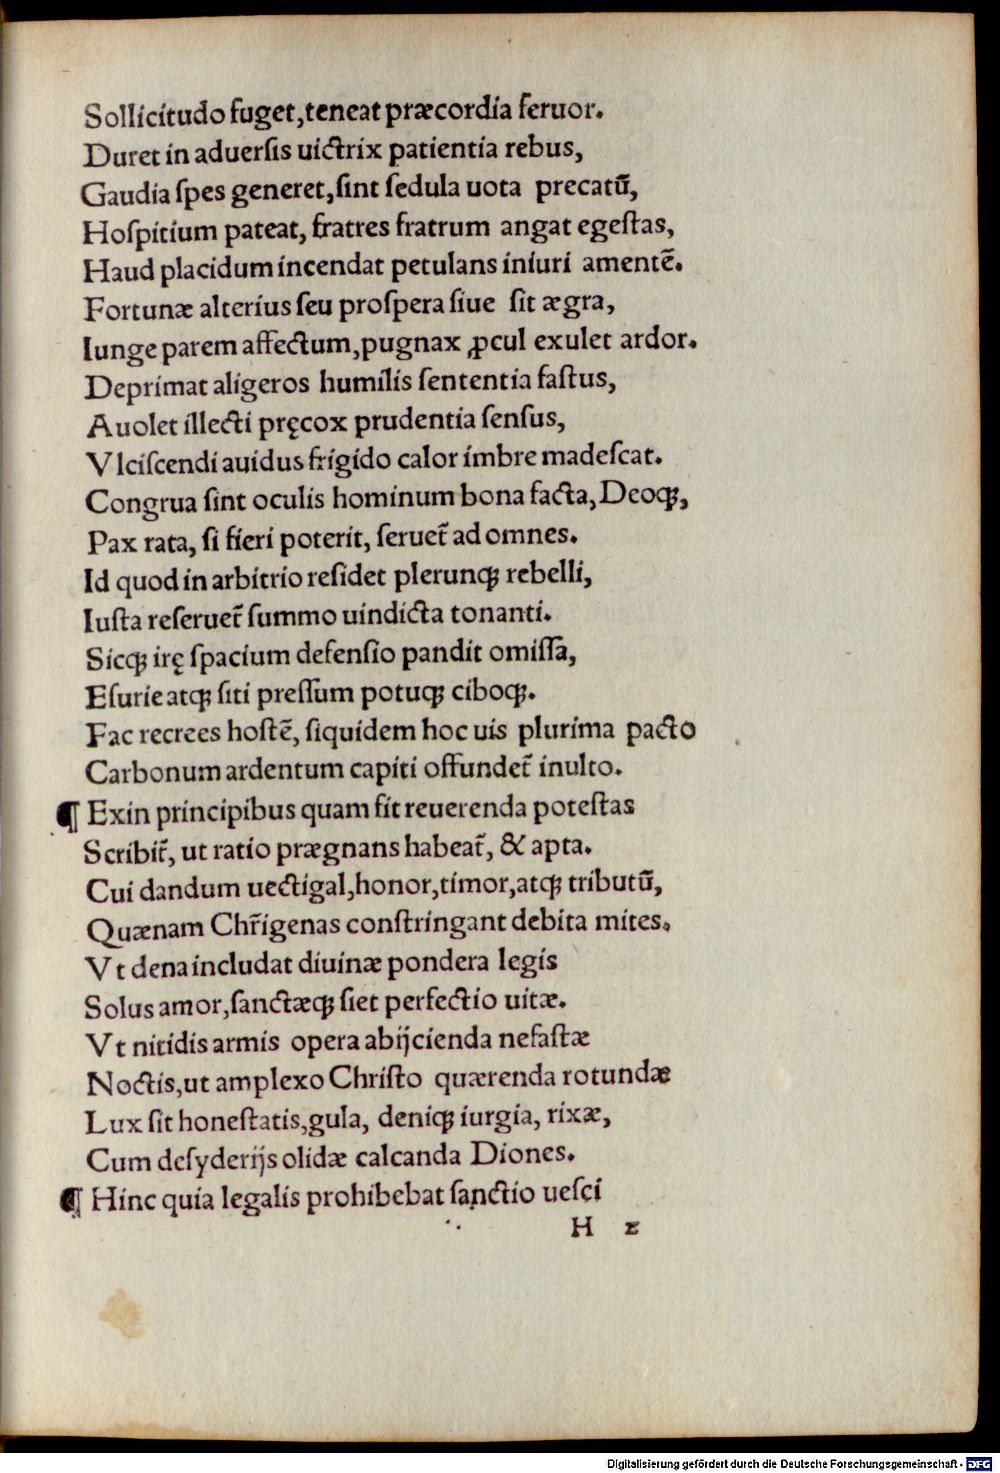 Sollicitudo fuget,teneat præcordia feruor.
Duret in aduersis uictrix patientia rebus,
Gaudia spes generet,sint sedula uota precatū,
Hospitium pateat, fratres fratrum angat egestas,
Haud placidum incendat petulans iniuri amentē.
Fortunæ alterius seu prospera siue sit ægra,
Iunge parem affectum,pugnax ꝓcul exulet ardor.
Deprimat aligeros humilis sententia fastus,
Auolet illecti pręcox prudentia sensus,
Vlciscendi auidus frigido calor imbre madescat.
Congrua sint oculis hominum bona facta,Deoqꝫ,
Pax rata, si fieri poterit, seruet̃ ad omnes.
Id quod in arbitrio residet plerunqꝫ rebelli,
Iusta reseruet̃ summo uindicta tonanti.
Sicqꝫ irę spacium defensio pandit omissa,
Esurie atqꝫ siti pressum potuqꝫ ciboqꝫ.
Fac recrees hostē, siquidem hoc uis plurima pacto
Carbonum ardentum capiti offundet̃ inulto.
¶ Exin principibus quam sit reuerenda potestas
Scribit̃, ut ratio prægnans habeat̃, & apta.
Cui dandum uectigal,honor,timor,atqꝫ tributū,
Quænam Chr̃igenas constringant debita mites.
Vt dena includat diuinæ pondera legis
Solus amor,sanctæqꝫ siet perfectio uitæ.
Vt nitidis armis opera abijcienda nefastæ
Noctis,ut amplexo Christo quærenda rotundæ
Lux sit honestatis,gula, deniqꝫ iurgia, rixæ,
Cum desyderijs olidæ calcanda Diones.
¶ Hinc quia legalis prohibebat sanctio uesci
H z
Digitalisierung gefördert durch die Deutsche Forschungsgemeinschaft - DFG